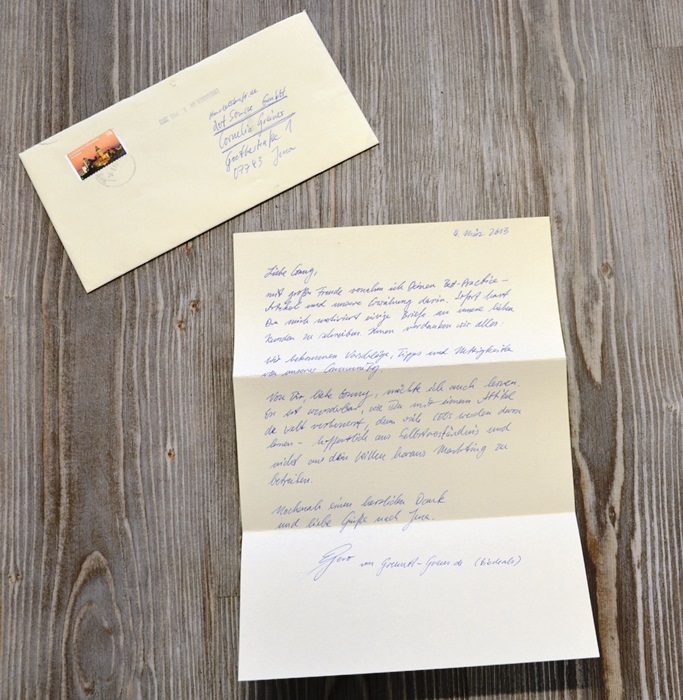 dotSource GmbH
Cornelia Greiner
Goethestraße 1
07743 Jena
4. März 2013
Liebe Conny,
mit großer Freude vernahm ich Deinen Best-Practice-
Artikel und unsere Erwähnung darin. Sofort hast
Du mich motiviert einige Briefe an unsere lieben
Kunden zu schreiben. Ihnen verdanken wir alles.
Wir bekommen Vorschläge, Tipps und Nettigkeiten
von unserer Community.
Von Dir, liebe Conny, möchte ich auch lernen.
Es ist wunderbar, wie Du mit einem Artikel
die Welt verbesserst, denn viele CEOs werden davon
lernen - hoffentlich aus Selbstverständnis und
nicht aus dem Willen heraus Marketing zu
betreiben.
Nochmals einen herzlichen Dank
und liebe Grüße nach Jena.
Gero